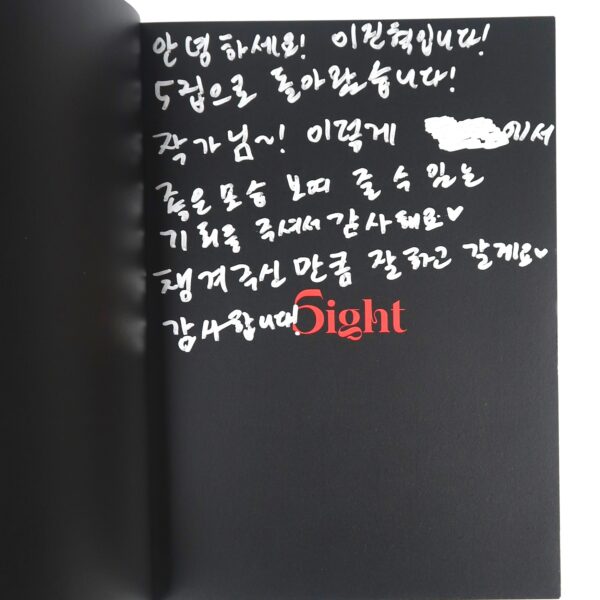 안녕하세요! 이진혁입니다!
5집으로 돌아왔습니다!
작가님~! 이렇게 에서
좋은모습 보여 줄 수 있는
기회를 주셔서 감사해요♥
챙겨주신 만큼 잘 하고 갈게요♥
감사합니다!
5ight